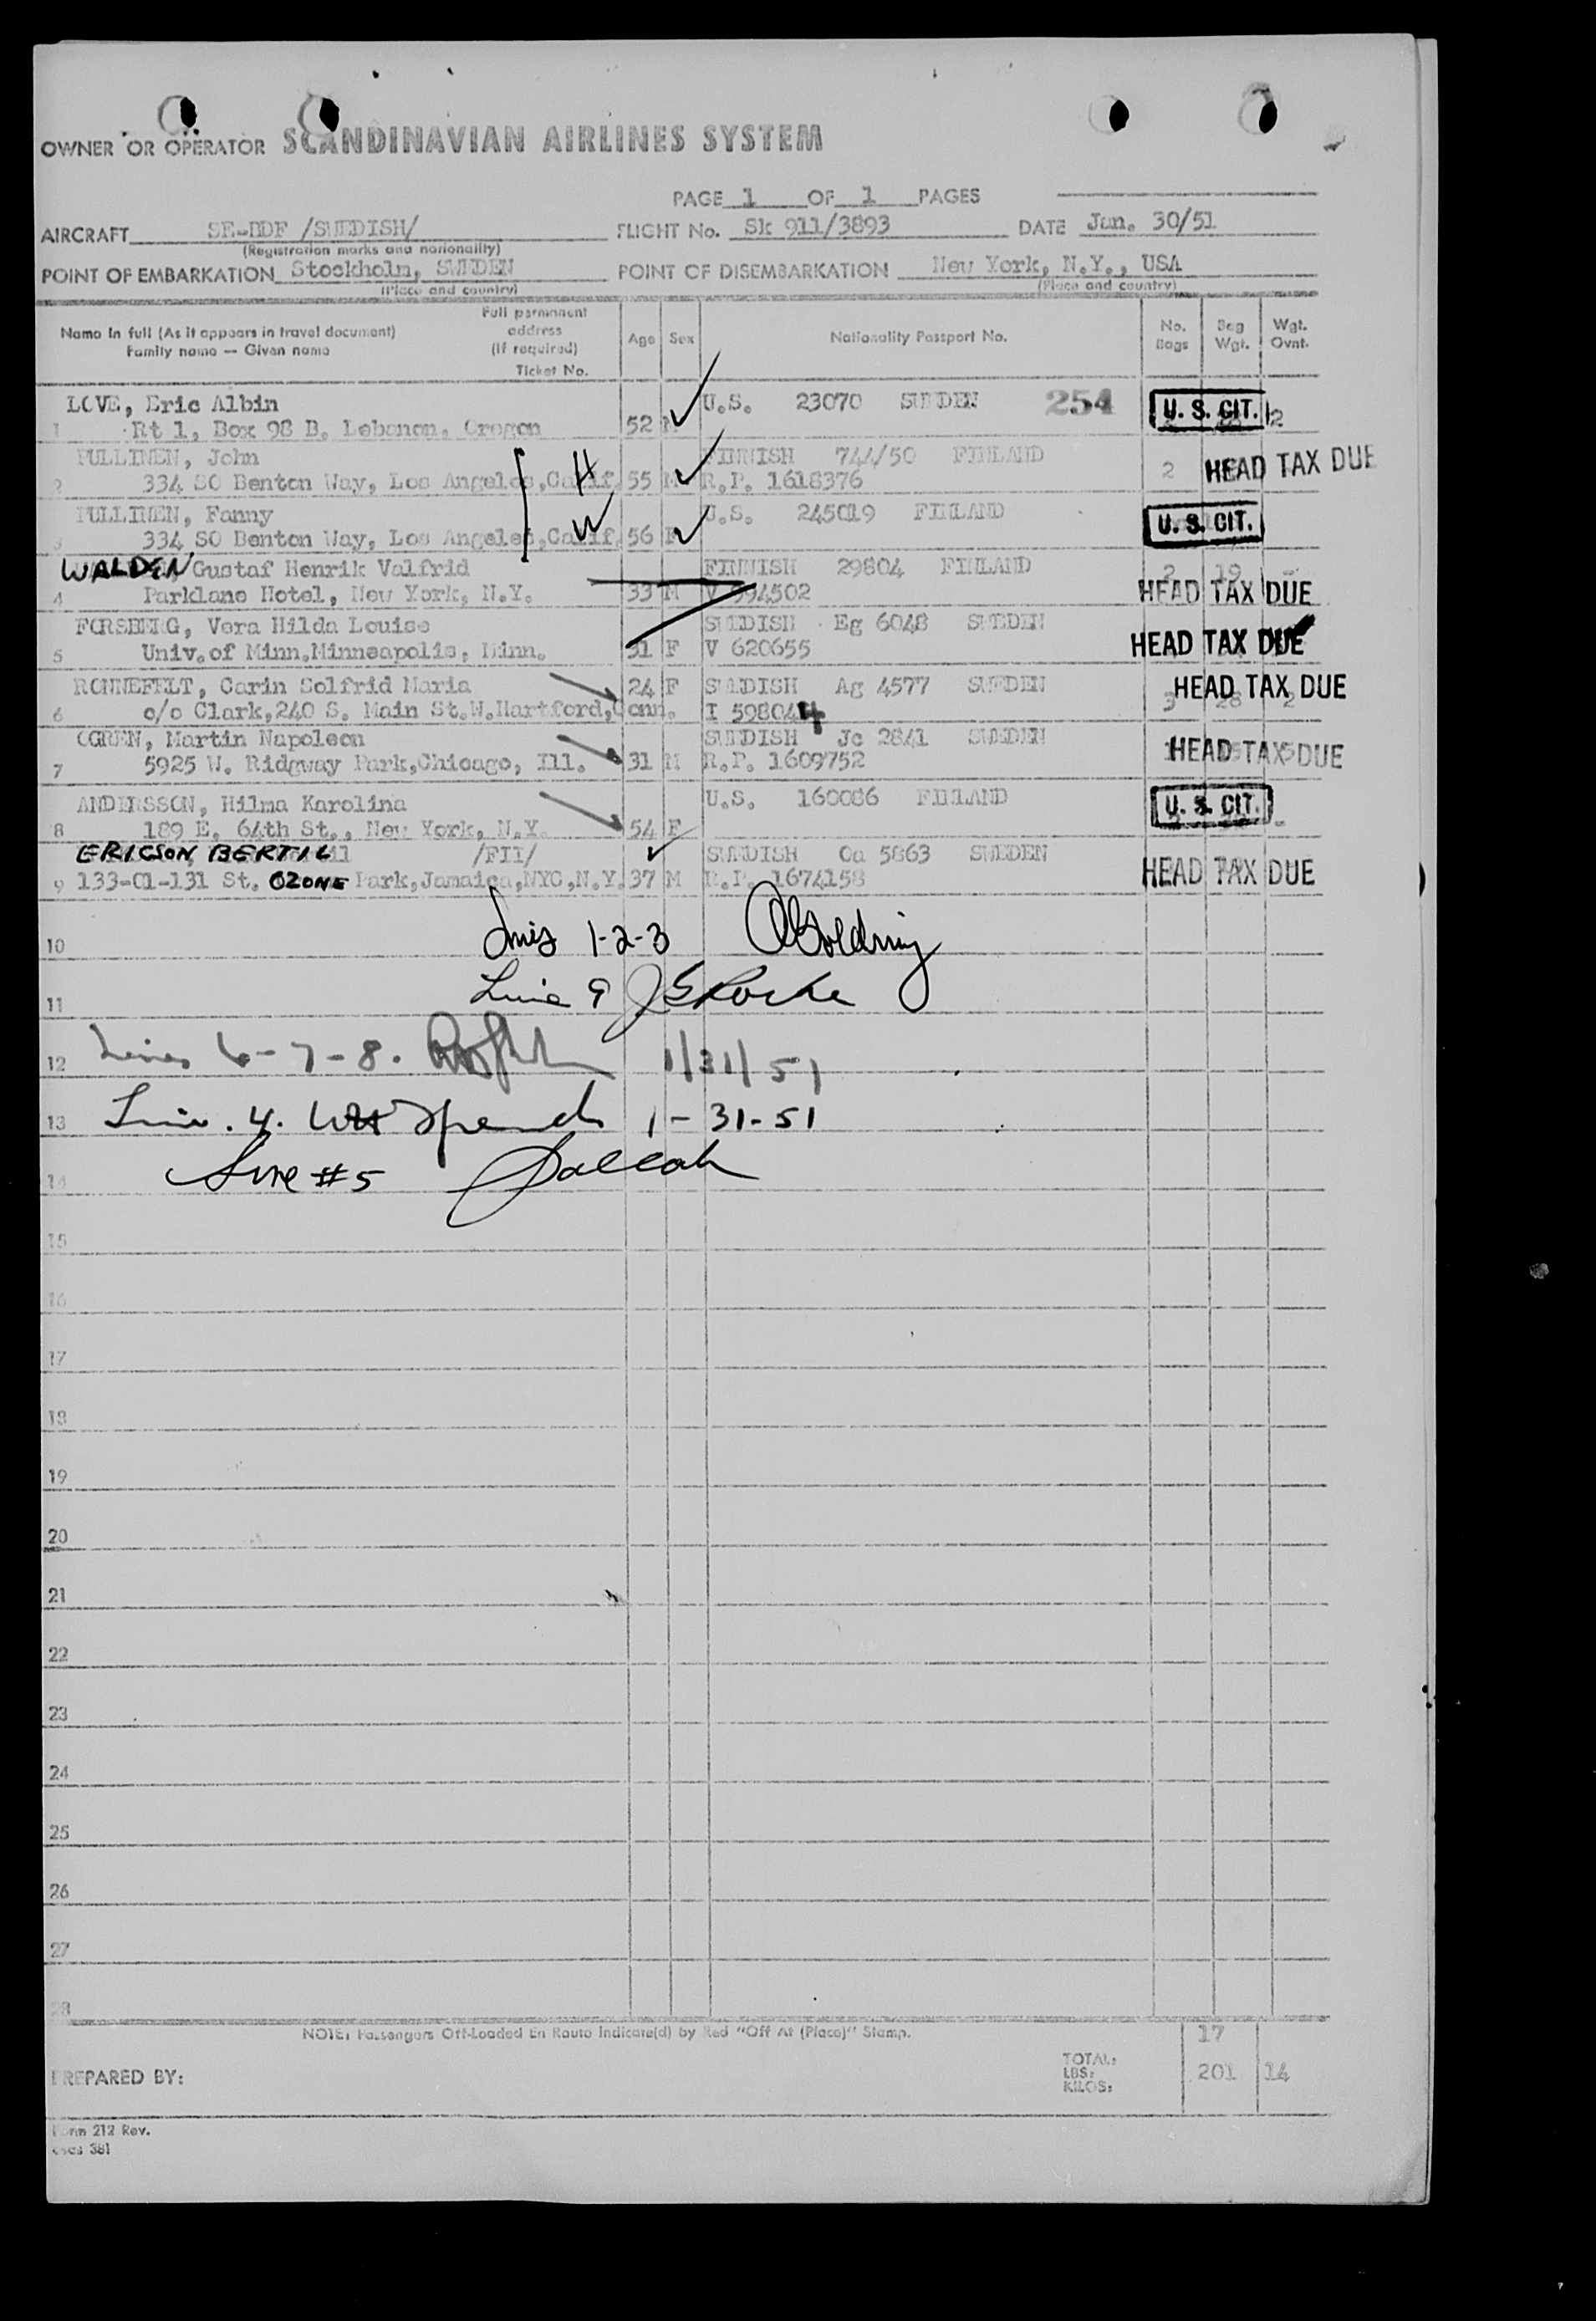 OWNER OR OPERATOR SCANDINAVIAN AIRLINES SYSTEM
PAGE 1 OF 1 PAGES
AIRCRAFT SE-BDF /SWEDISH/ FLIGHT No. Sk 911/3893 DATE Jan. 30/51
(Registration marks and nationality)
POINT OF EMBARKATION Stockholm, SWEDEN POINT OF DISEMBARKATION New York, N.Y., USA
(Place and country) (Place and country)
Name in full (As it appears in travel document) Family name — Given name Full permanent address (if required) Ticket No. Age Sex Nationality Passport No. No. Bags Bag Wgt. Wgt. Ovnt.
LOVE, Eric Albin U.S. 23070 SWEDEN 254 U. S. CIT. 2
1 Rt 1, Box 98 B, Lebanon, Oregon 52 M
PULLINEN, John H FINNISH 744/50 FINLAND
2 334 SO Benton Way, Los Angeles, Calif. 55 M R.P. 1618376 2 HEAD TAX DUE
PULLINEN, Fanny W U.S. 245019 FINLAND U. S. CIT.
3 334 SO Benton Way, Los Angeles, Calif. 56 F
WALDEN Gustaf Henrik Valfrid FINNISH 29804 FINLAND 2 19
4 Parklane Hotel, New York, N.Y. 33 M V 994502 HEAD TAX DUE
FORSBERG, Vera Hilda Louise SWEDISH Eg 6048 SWEDEN
5 Univ. of Minn, Minneapolis, Minn. 31 F V 620655 HEAD TAX DUE
RONNEFELT, Carin Solfrid Maria 24 F SWEDISH Ag 4577 SWEDEN HEAD TAX DUE
6 c/o Clark, 240 S. Main St. W. Hartford, Conn. I 598044 3 28 2
OGREN, Martin Napoleon SWEDISH Jc 2841 SWEDEN
7 5925 W. Ridgway Park, Chicago, Ill. 31 M R.P. 1609752 HEAD TAX DUE
ANDERSSON, Hilma Karolina U.S. 160086 FINLAND U. S. CIT.
8 189 E. 64th St., New York, N.Y. 54 F
ERICSON, BERTIL /FII/ SWEDISH Oa 5863 SWEDEN
9 133-01-131 St. OZONE Park, Jamaica, NYC, N.Y. 37 M R.P. 1674158 HEAD TAX DUE
10 Lines 1-2-3
11 Line 9
12 Lines 6-7-8. 1/31/51
13 Line. 4. 1-31-51
14 Line #5
15
16
17
18
19
20
21
22
23
24
25
26
27
28
NOTE: Passengers Off-Loaded En Route indicate(d) by Red "Off At (Place)" Stamp. 17
PREPARED BY: TOTAL: LBS: KILOS: 201 14
Form 212 Rev.
381